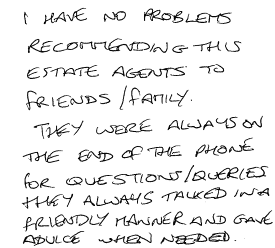 I HAVE NO PROBLEMS
RECOMMENDING THIS
ESTATE AGENTS TO
FRIENDS/FAMILY.
THEY WERE ALWAYS ON
THE END OF THE PHONE
FOR QUESTIONS/QUERIES
THEY ALWAYS TALKED IN A
FRIENDLY MANNER AND GAVE
ADVICE WHEN NEEDED.